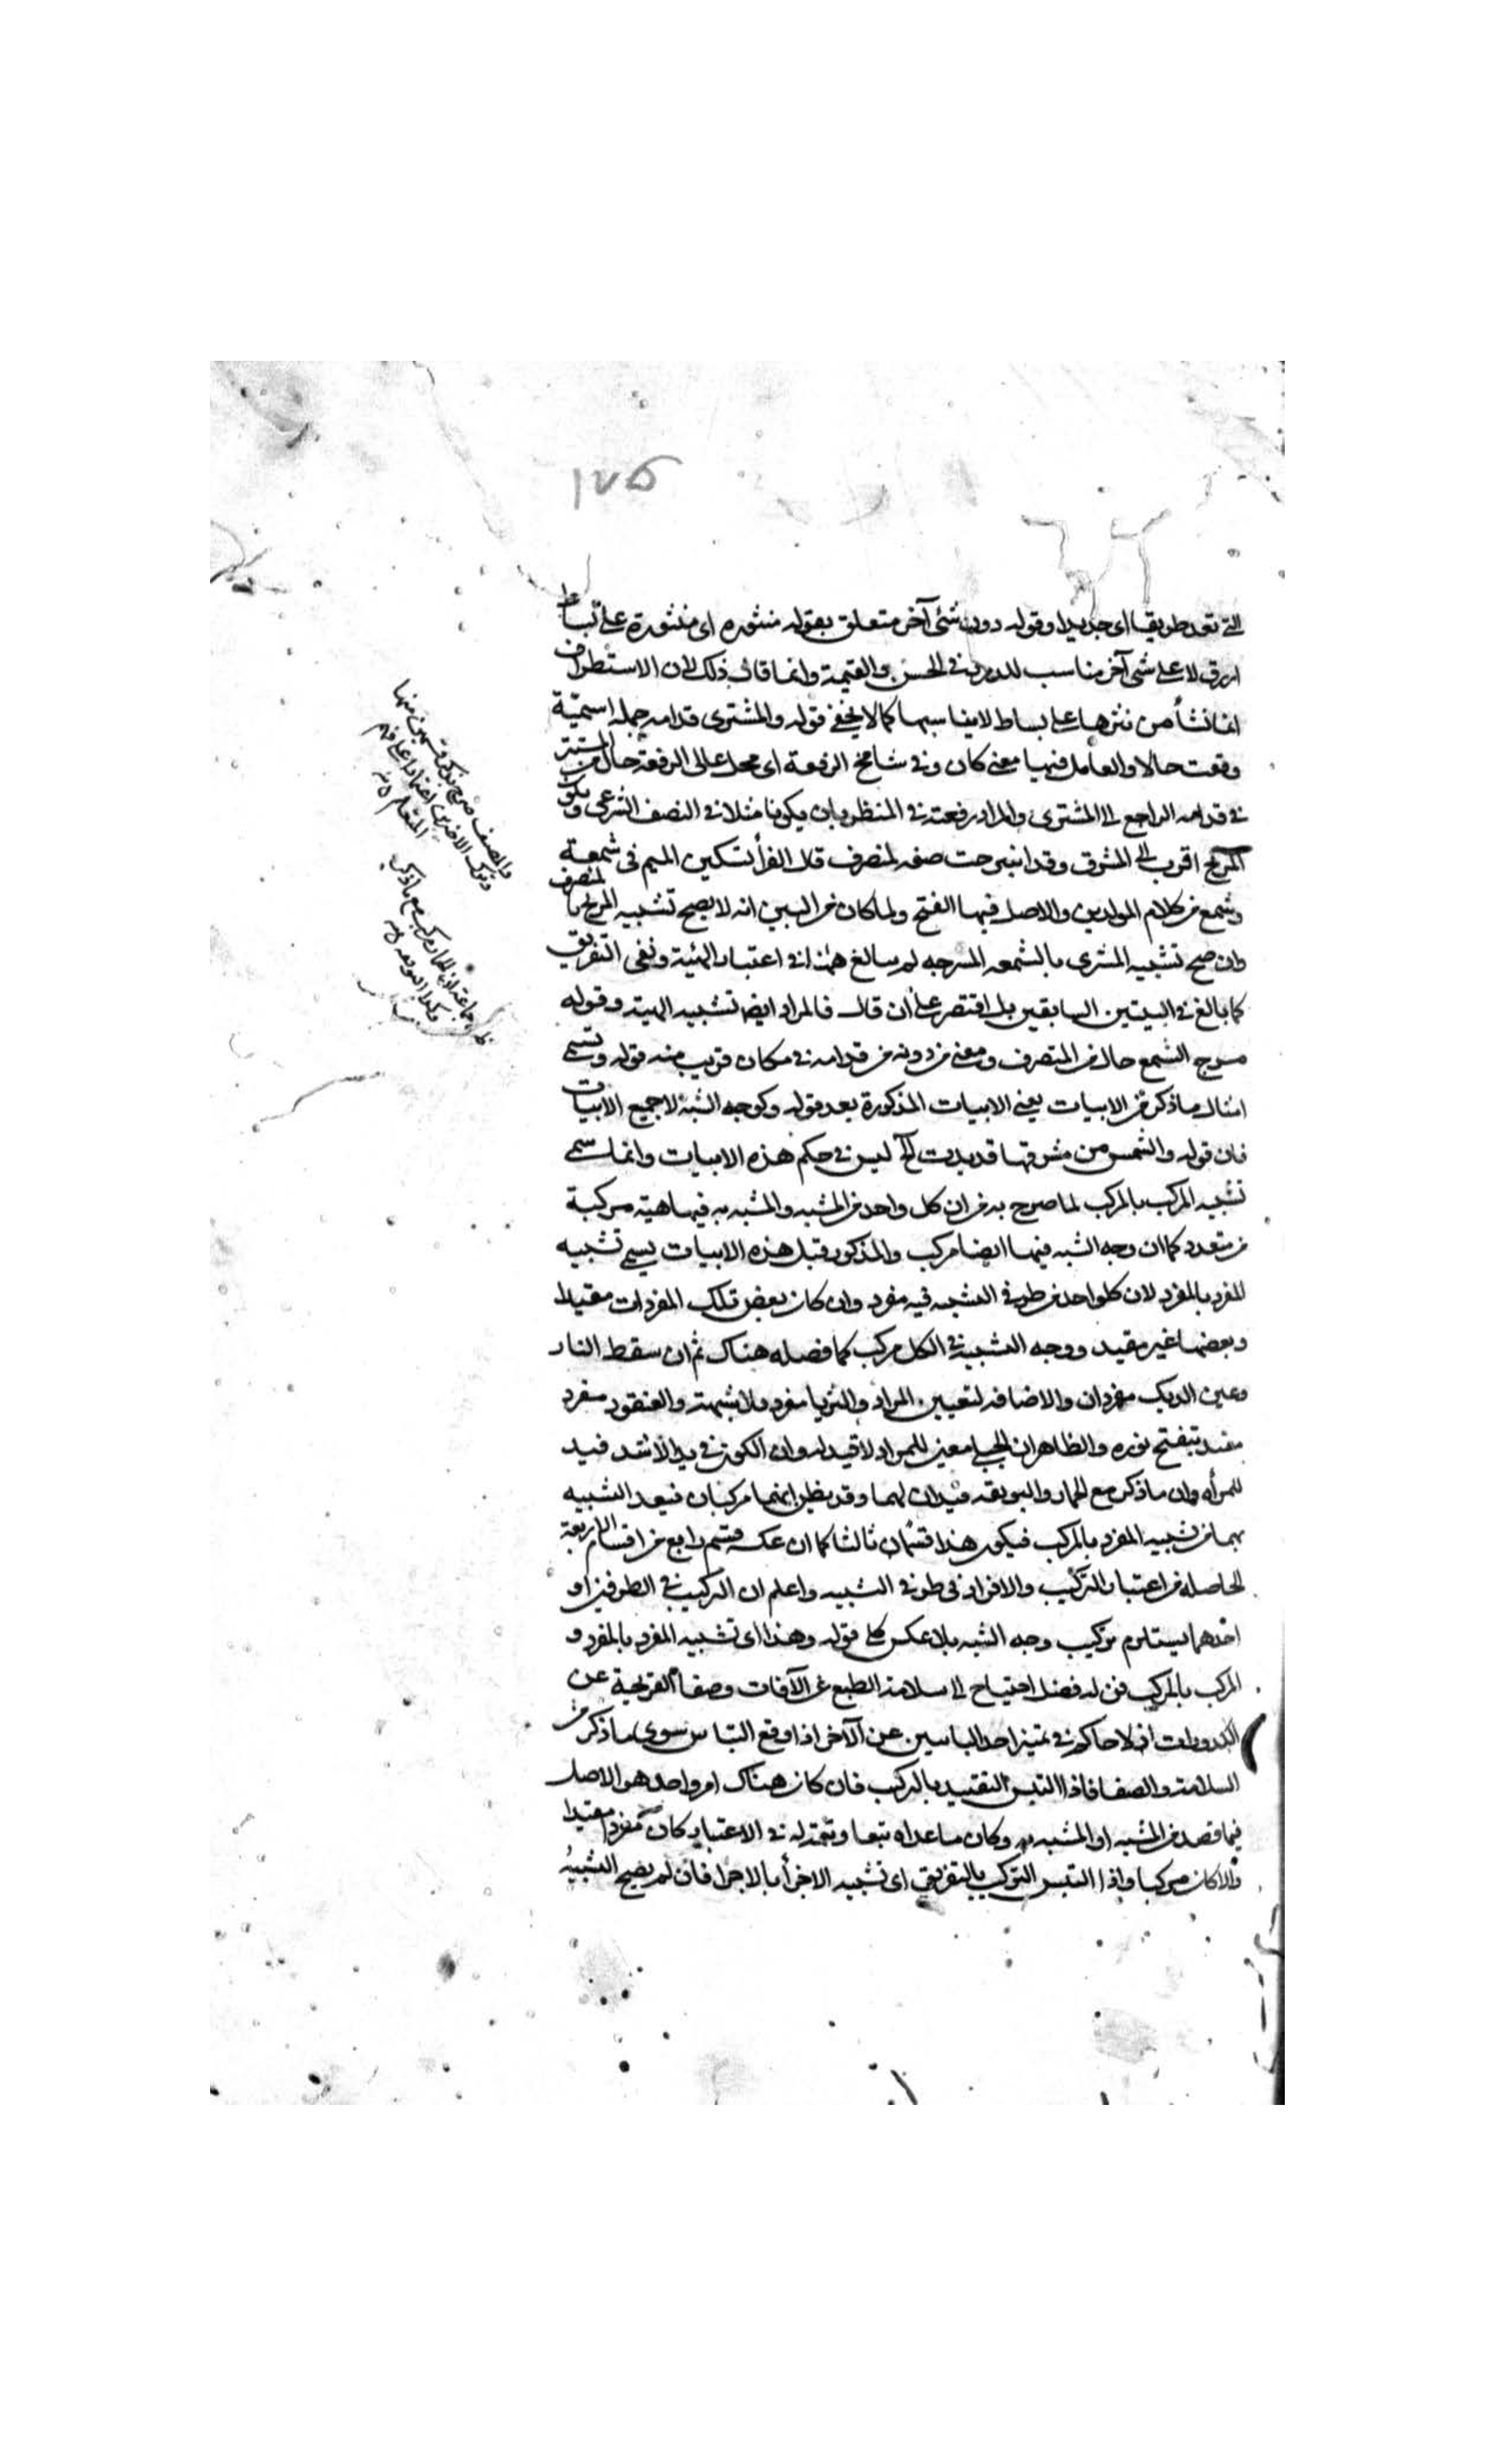 ١٧٥
التي تعد طريقا اى جديدا وقوله دون شئ آخر متعلق بقوله منثوره اى منثورة على بساط
ازرق لا على شئ آخر مناسب للدرر فى الحسن والقيمة وانما قال ذلك لان الاستطراف
انما نشأ من نثرها على بساط لا يناسبها كما لا يخفى قوله والمشترى قدامه جملة اسمية
وقعت حالا والعامل فيها معنى كان وفى شامخ الرفعة اى محل عالى الرفعة حال من المستتر
فى قدامه الراجع الى المشترى والمراد رفعته فى المنظر بان يكونا مثلا فى النصف الشرقى ويكون
المريخ اقرب الى المشرق وقد اسرجت صفه لمنصرف قال الفرأ تسكين الميم فى شمعة
وشمع من كلام المولدين والاصل فيها الفتح ولما كان من البين انه لا يصح تشبيه المريخ بالمنصرف
وان صح تشبيه المشترى بالشمعه المسرجه لم يبالغ ههنا فى اعتبار الهيئة ونفى التفريق
كما بالغ فى البيتين السابقين بل اقتصر على أن قال فالمراد ايضا تشبيه الهيئة وقوله
مسرج الشمع حال من المنصرف ومعنى من دونه من قدامه فى مكان قريب منه قوله وتسمى
امثال ما ذكر من الابيات يعنى الابيات المذكورة بعد قوله وكوجه الشبه لا جميع الابيات
فان قوله والشمس من مشرقها قد بدت آه ليس فى حكم هذه الابيات وانما سمى
تشبيه المركب بالمركب لما صرح به من ان كل واحد من المشبه والمشبه به فيها هيئة مركبة
من متعدد كما ان وجه الشبه فيها ايضا مركب والمذكور قبل هذه الابيات يسمى تشبيه
المفرد بالمفرد لان كل واحد من طرفى التشبيه فيه مفرد وان كان بعض تلك المفردات مقيدا
وبعضها غير مقيد ووجه التشبيه فى الكل مركب كما فصله هناك ثم ان سقط النار
وعين الديك مفردان والاضافه لتعيين المراد والثريا مفرد بلا شبهة والعنقود مفرد
مقيد بتفتح نوره والظاهر ان الملاحى معين للمراد لا قيد له وان الكون فى يد الاشل قيد
للمرأه وان ما ذكر مع الحمار والبويقه قيدان لهما وقد يظن انهما مركبان فيعد التشبيه
بهما من تشبيه المفرد بالمركب فيكون هذا قسما ثالثا كما ان عكسه قسم رابع من اقسام الاربعة
الحاصله من اعتبار التركيب والافراد فى طرفى التشبيه واعلم ان التركيب فى الطرفين او
احدهما يستلزم تركيب وجه الشبه بلا عكس كلى قوله وهذا اى تشبيه المفرد بالمفرد و
المركب بالمركب فن له فضل احتياج الى سلامة الطبع عن الآفات وصفا القريحة عن
الكدورات اذ لا حاكم فى تمييز احد البابين عن الآخر اذا وقع التباس سوى ما ذكر من
السلامة والصفا فاذا التبس التقييد بالتركيب فان كان هناك امر واحد هو الاصل
فيما قصد من المشبه او المشبه به وكان ما عداه تبعا وتتمة له فى الاعتبار كان مفردا مقيدا
والا كان مركبا واذا التبس التركيب بالتفريق اى تشبيه الاجزأ بالاجزا فان لم يصح التشبيه
والمصنف صرح بذكر قسمين منها
وترك الاخرين اعتمادا على فهم
المتعلم
جماعة ان الحمار مركب مع ما ذكر